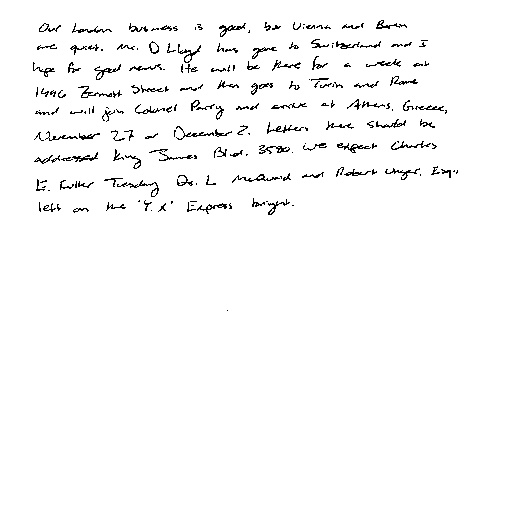 Our London business is good, but Vienna and Berlin
are quiet. Mr. D Lloyd has gone to Switzerland and I
hope for good news. He will be there for a week at
1496 Zermott Street and then goes to Turin and Rome
and will join Colonel Parry and arrive at Athens, Greece,
November 27 or December 2. Letters there should be
addressed King James Blvd. 3580. We expect Charles
E. Fuller Tuesday. Dr. L McQuaid and Robert Unger, Esq.,
left on the "Y.X" Express